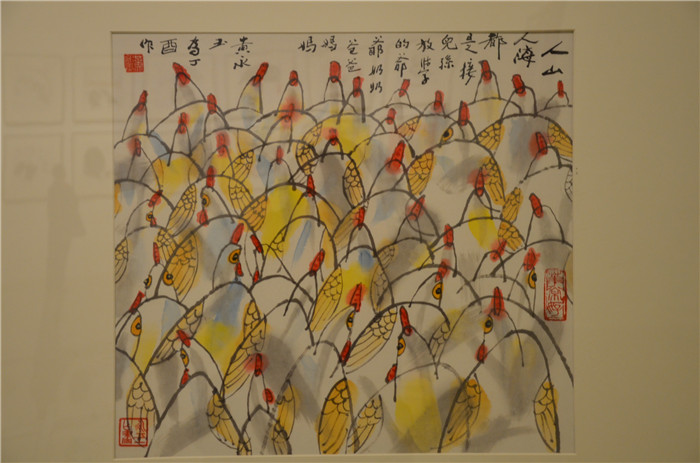 人山
人海
都
是接
兒孫
放學
的爺
爺奶奶
爸爸
媽
媽
黄永
玉
丁
酉
作